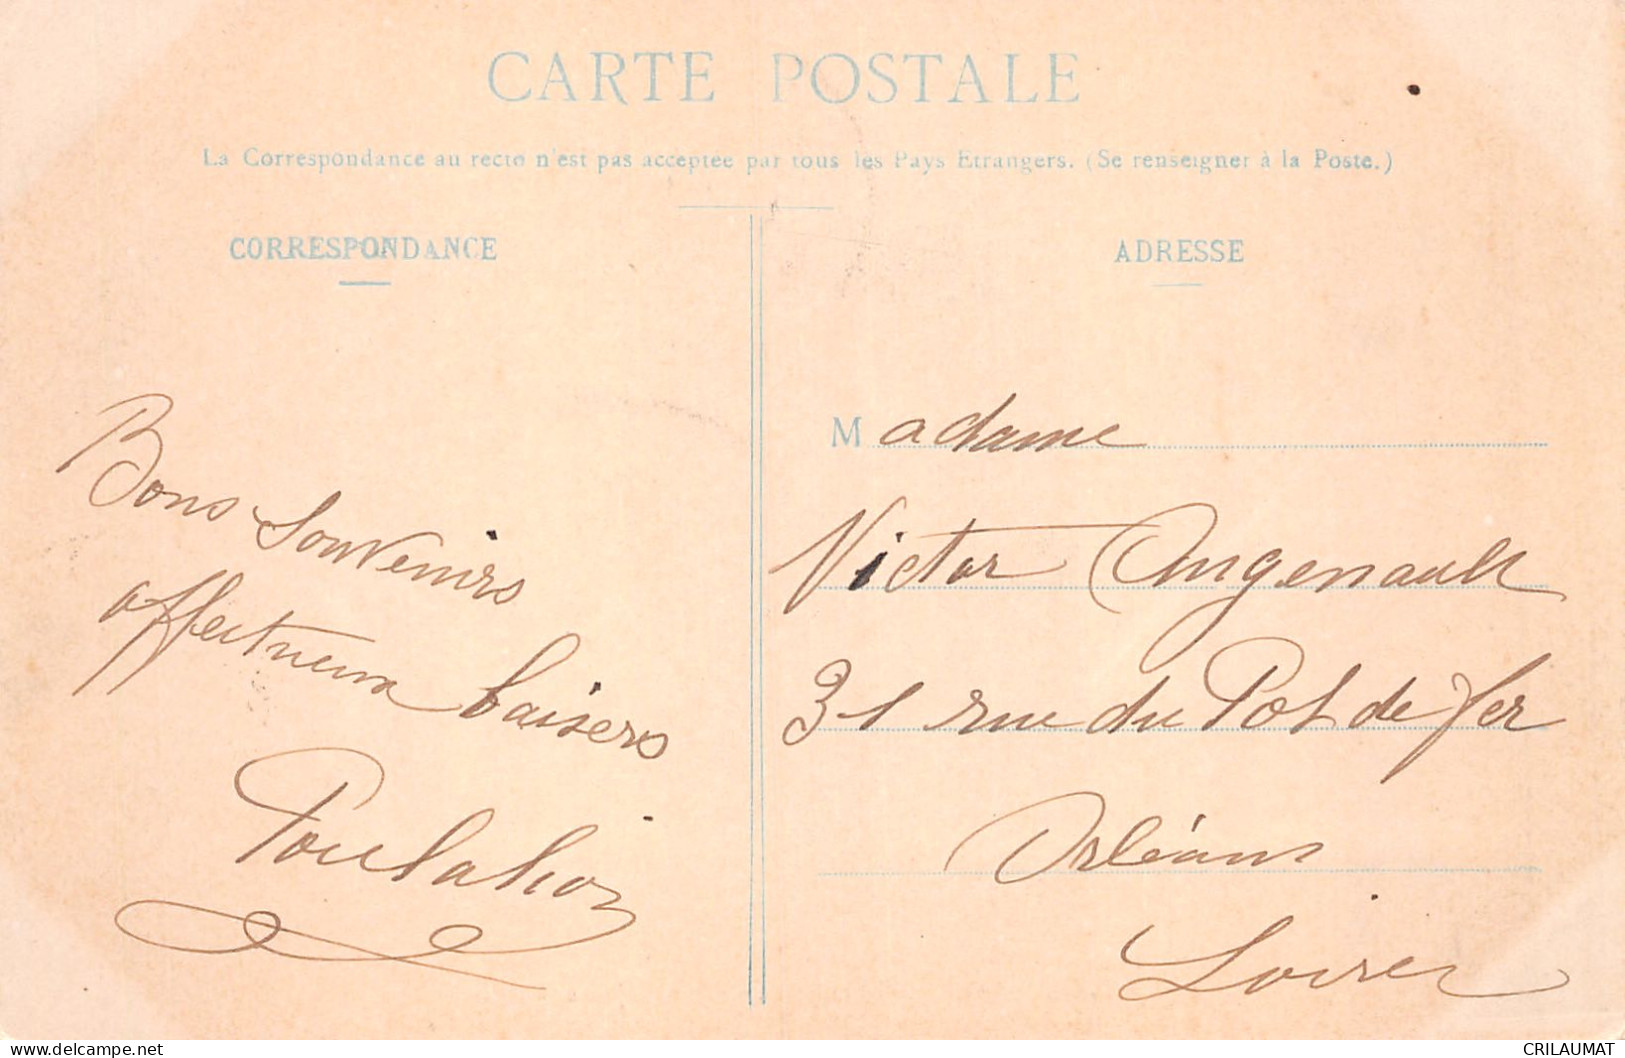 CARTE POSTALE
La Correspondance au recto n'est pas acceptée par tous les Pays Etrangers. (Se renseigner à la Poste.)
CORRESPONDANCE
Bons souvenirs
affectueux baisers
ADRESSE
Madame
Victor Angenault
31 rue du Pot de fer
Orléans
Loiret
delcampe.net
CRILAUMAT